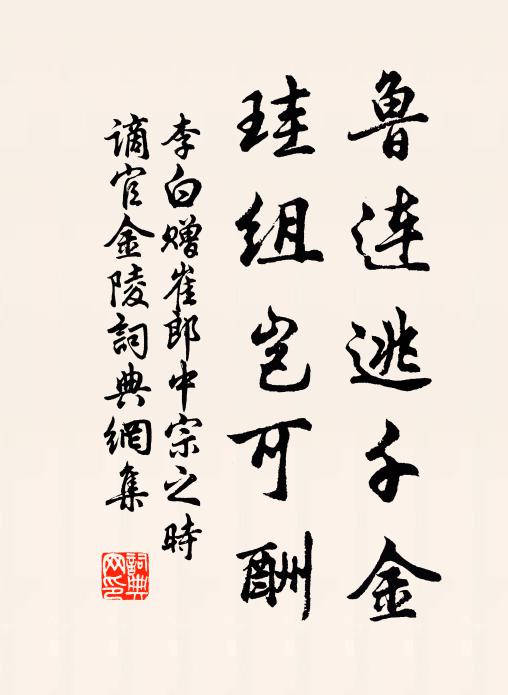 鲁连逃千金
珪组岂可酬
李白赠崔郎中宗之时
谪官金陵词典網集
詞典網印